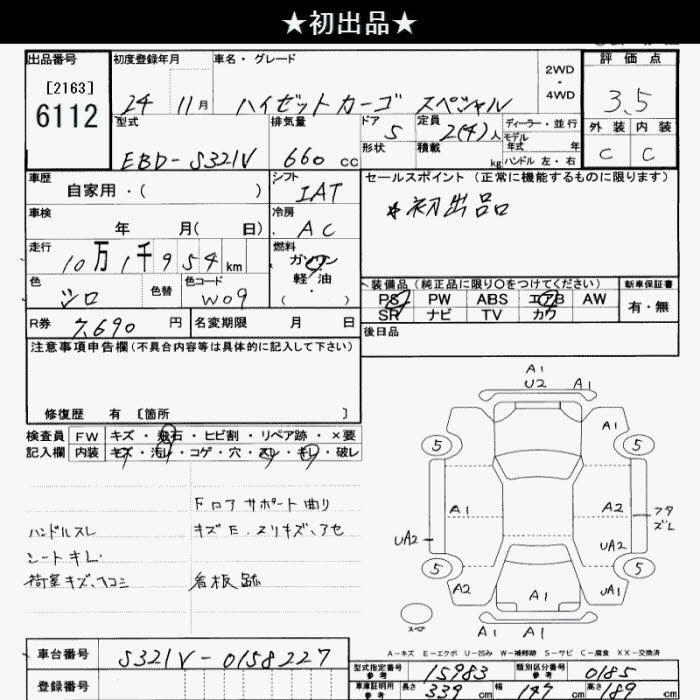 ★初出品★
出品番号
[2163]
6112
初度登録年月
24 11月
車名・グレード
ハイゼットカーゴ スペシャル
2WD
・
4WD
評価点
3.5
外装 内装
C C
型式
EBD-S321V
排気量
660 cc
ドア
5
形状
定員
2(4)人
積載
kg
ディーラー・並行
モデル年式 年
ハンドル 左・右
車歴
自家用・( )
シフト
IAT
セールスポイント(正常に機能するものに限ります)
*初出品
車検
年 月( 日)
冷房
AC
走行
10万1千954km
燃料
ガソリン
軽油
・( )
色
シロ
色替
色コード
W09
装備品(純正品に限り○をつけてください)
PS PW ABS エアB AW
SR ナビ TV カワ
新車保証書
有・無
R券
7,690 円
名変期限 月 日
後日品
注意事項申告欄(不具合内容等は具体的に記入して下さい)
修復歴 有 [箇所 ]
検査員記入欄
FW キズ・飛石・ヒビ割・リペア跡・×要
内装 キズ・汚レ・コゲ・穴・スレ・キレ・破レ
Fロアサポート曲り
ハンドルスレ
キズE.スリキズ、アセ
シートキレ
荷室キズ、ヘコミ
看板跡
A1
U2 A1
A1
5 5
A1 A2
フタズレ
UA2 UA2
5 5
A2 A1 UA1
スペア
A1 A1
A-キズ E-エクボ U-凹み W-補修跡 S-サビ C-腐食 XX-交換済
車台番号
S321V-0158227
登録番号
型式指定番号
参考
15983
類別区分番号
参考
0185
車庫証明用
参考
長さ 339 cm 幅 147 cm 高さ 189 cm